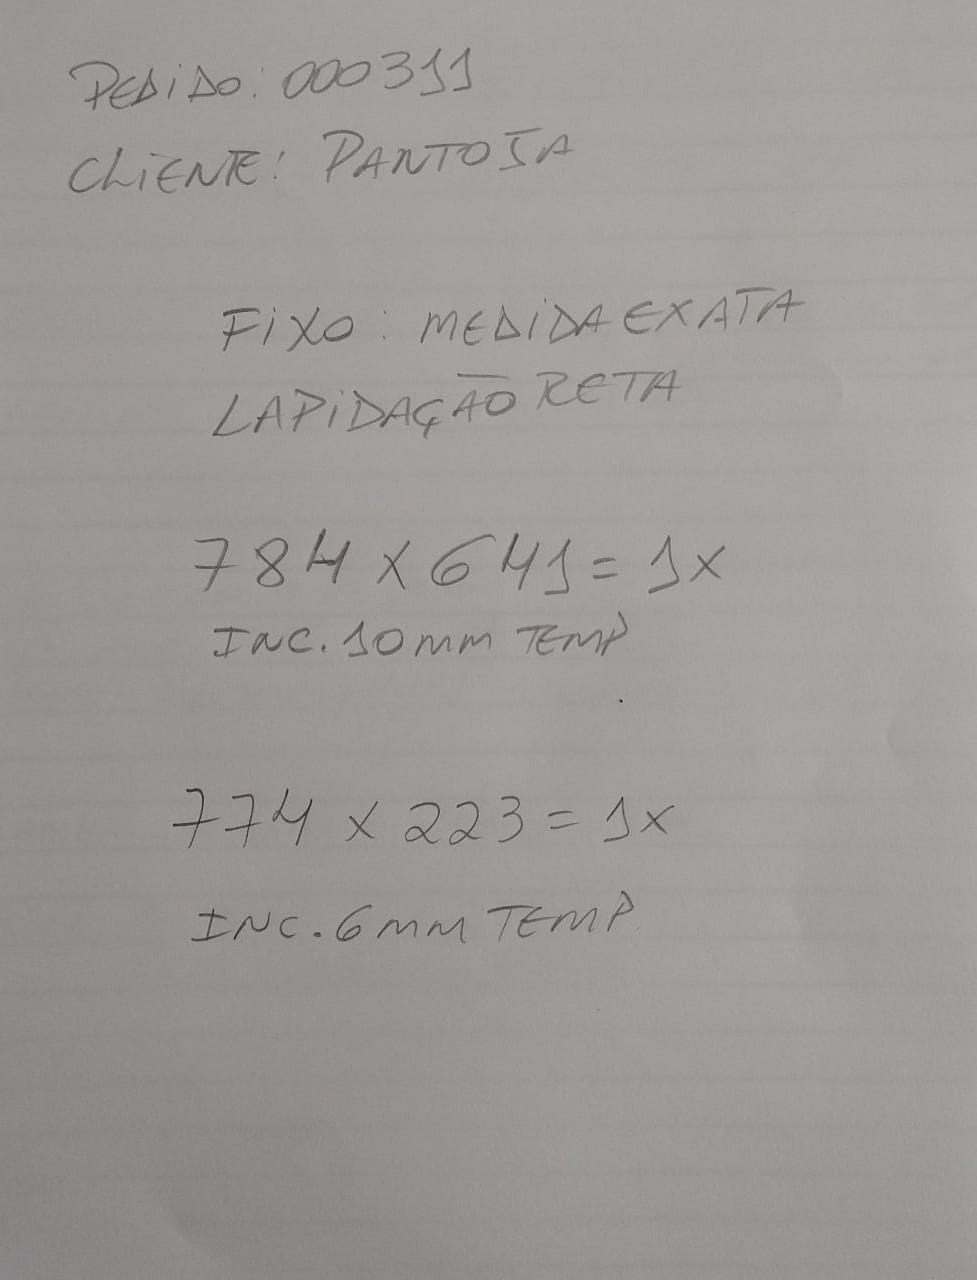 PEDIDO: 000311
CLIENTE: PANTOJA
FIXO: MEDIDA EXATA
LAPIDAÇÃO RETA
784 x 641 = 1x
INC. 10mm TEMP
774 x 223 = 1x
INC. 6mm TEMP